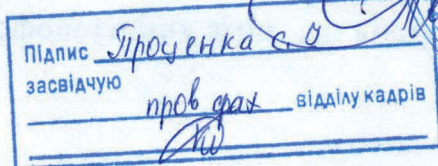 Підпис Проценка С. О
засвідчую
пров фах відділу кадрів